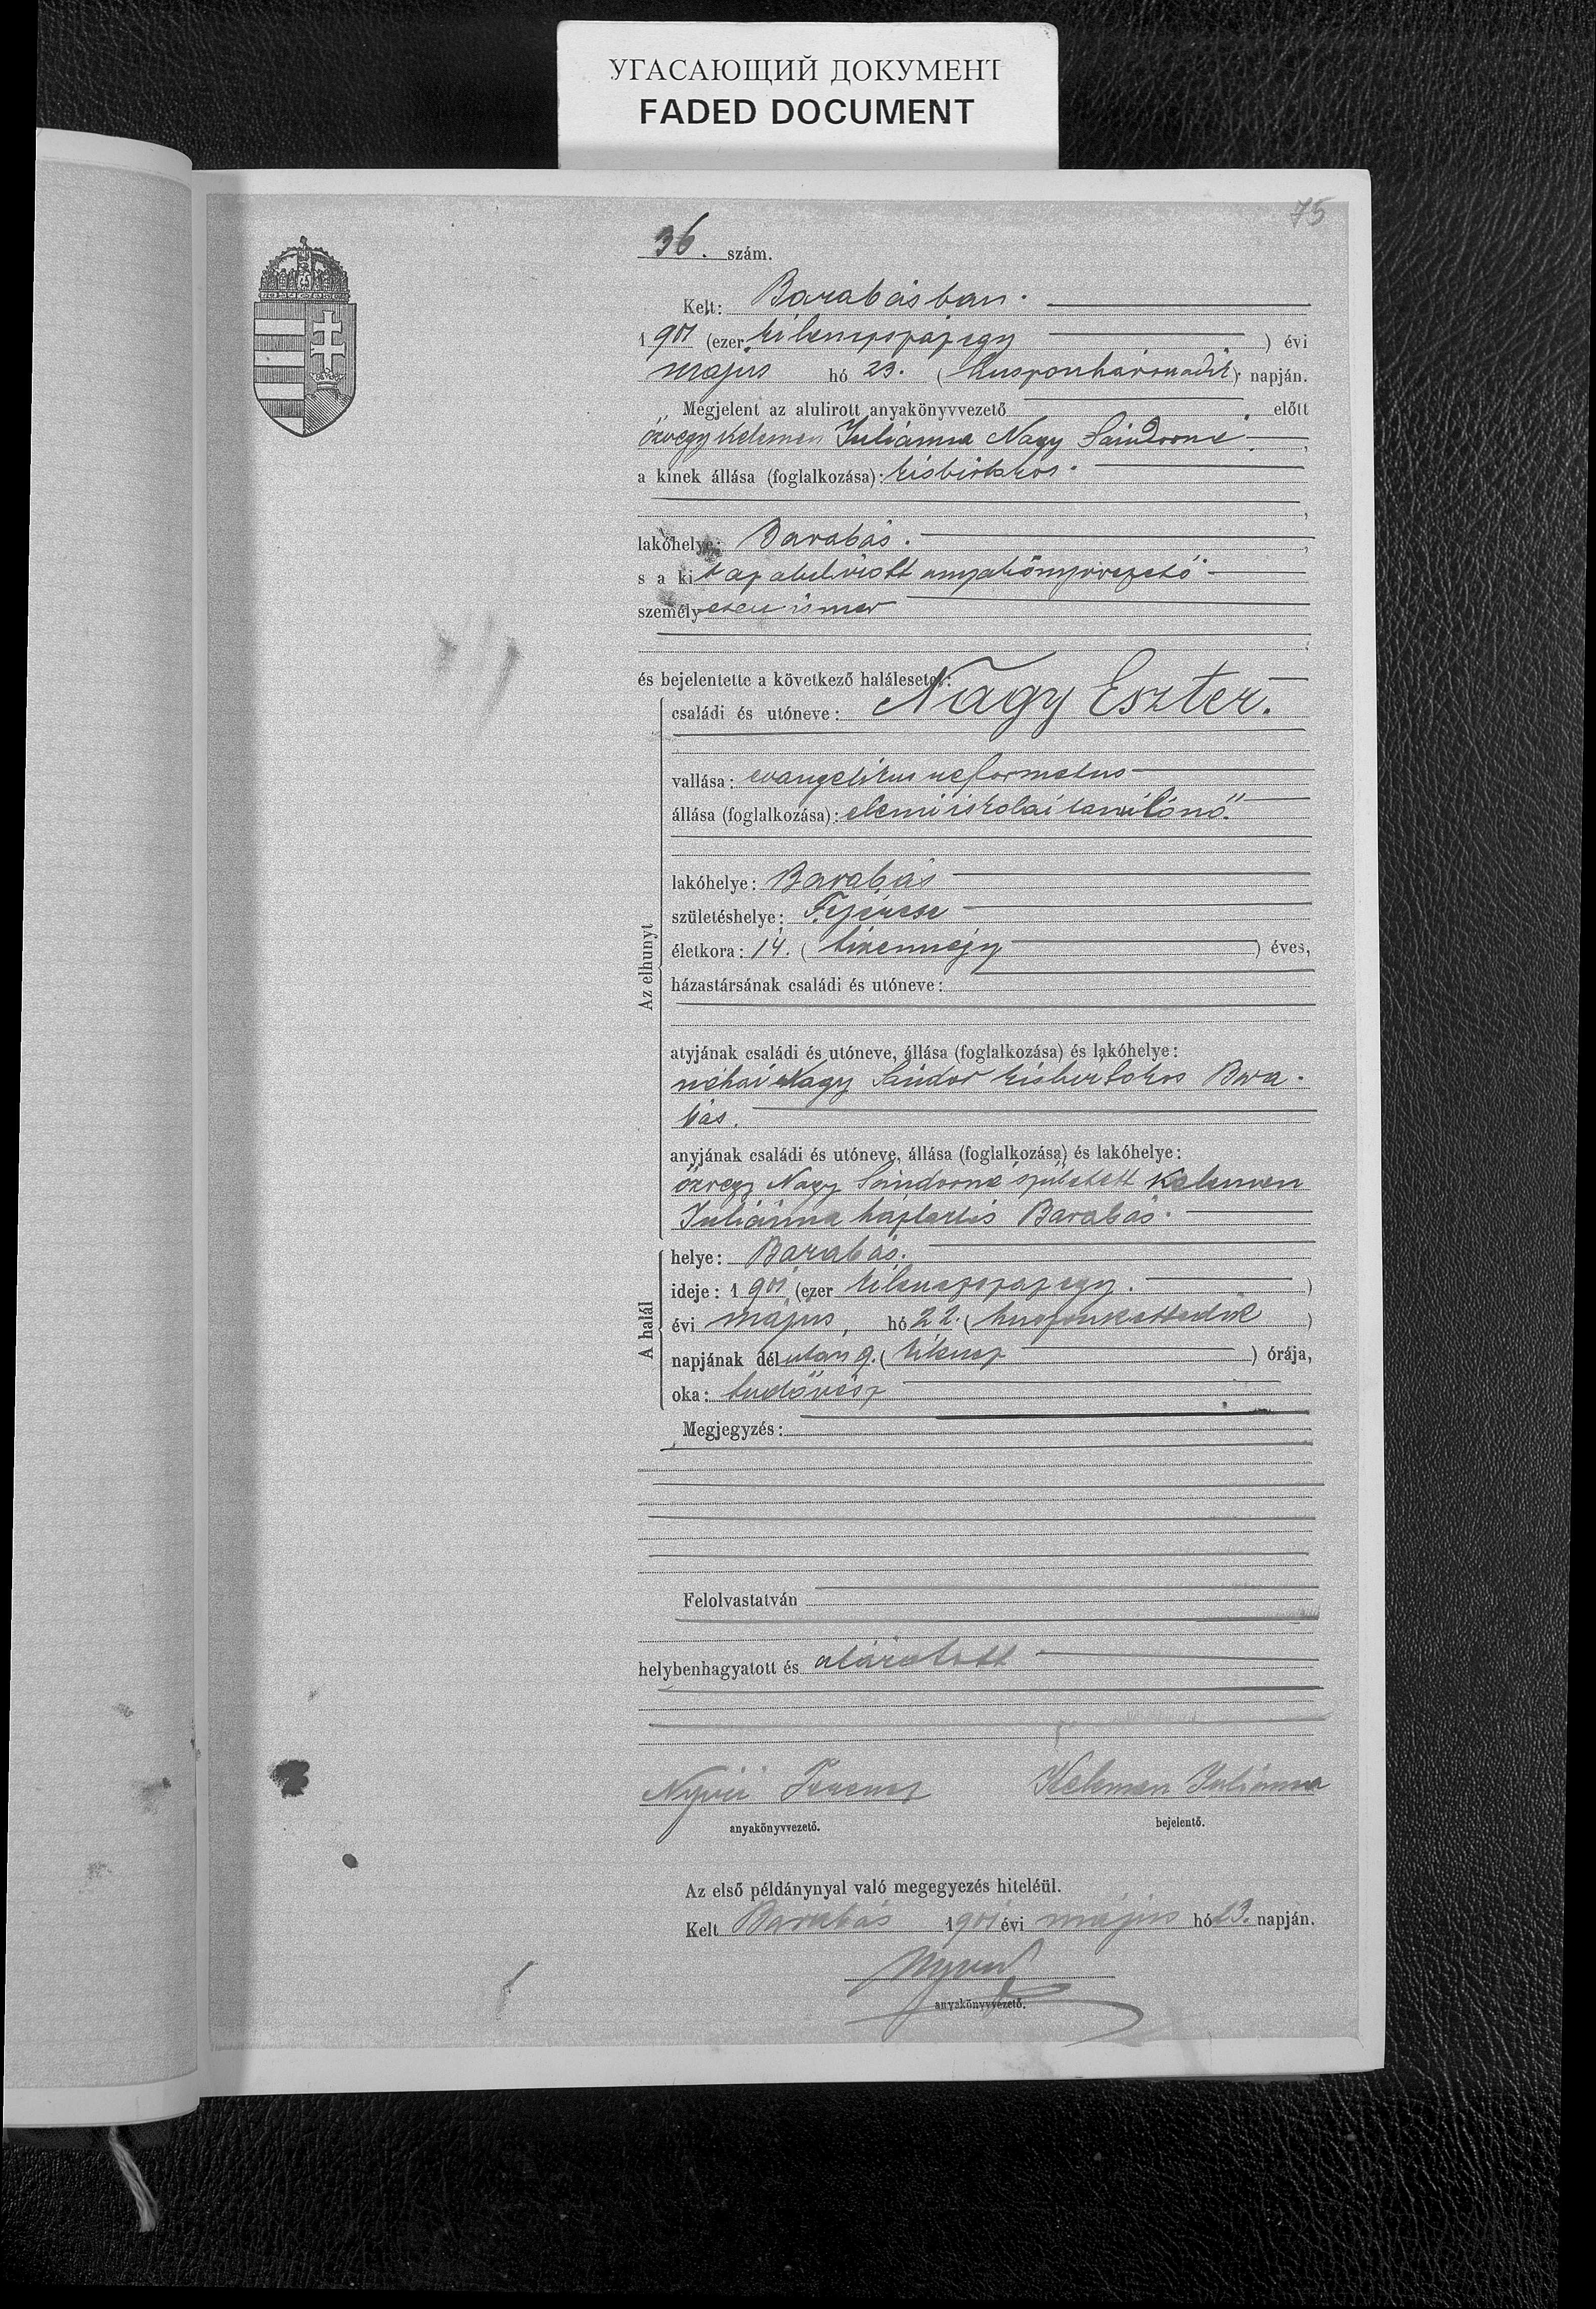 УГАСАЮЩИЙ ДОКУМЕНТ
FADED DOCUMENT
75
36. szám.
Kelt: Barabásban.
1901 (ezer kilenczszázegy ) évi
május hó 23. (huszonharmadik) napján.
Megjelent az alulirott anyakönyvvezető előtt
özvegy Kelemen Juliánna Nagy Sándorné,
a kinek állása (foglalkozása): kisbirtokos.
lakóhelye: Barabás.
s a kit az alulirott anyakönyvvezető
személyesen ismer
és bejelentette a következő halálesetet:
Az elhunyt
családi és utóneve: Nagy Eszter.
vallása: evangelikus reformatus
állása (foglalkozása): elemi iskolai tanúlónő.
lakóhelye: Barabás
születéshelye:
életkora: 14. (tizennégy ) éves,
házastársának családi és utóneve:
atyjának családi és utóneve, állása (foglalkozása) és lakóhelye:
néhai Nagy Sándor kisbirtokos Bara-
bás.
anyjának családi és utóneve, állása (foglalkozása) és lakóhelye:
özvegy Nagy Sándorné született Kelemen
Juliánna háztartás Barabás.
A halál
helye: Barabás.
ideje: 1901 (ezer kilenczszázegy. )
évi május, hó 22. (huszonkettedik )
napjának délután 9. (kilencz ) órája,
oka: tudővész
Megjegyzés:
Felolvastatván
helybenhagyatott és aláiratott
Nyiri Ferencz Kelemen Juliánna
anyakönyvvezető. bejelentő.
Az első példánynyal való megegyezés hiteléül.
Kelt Barabás 1901 évi május hó 23. napján.
Nyiri
anyakönyvvezető.